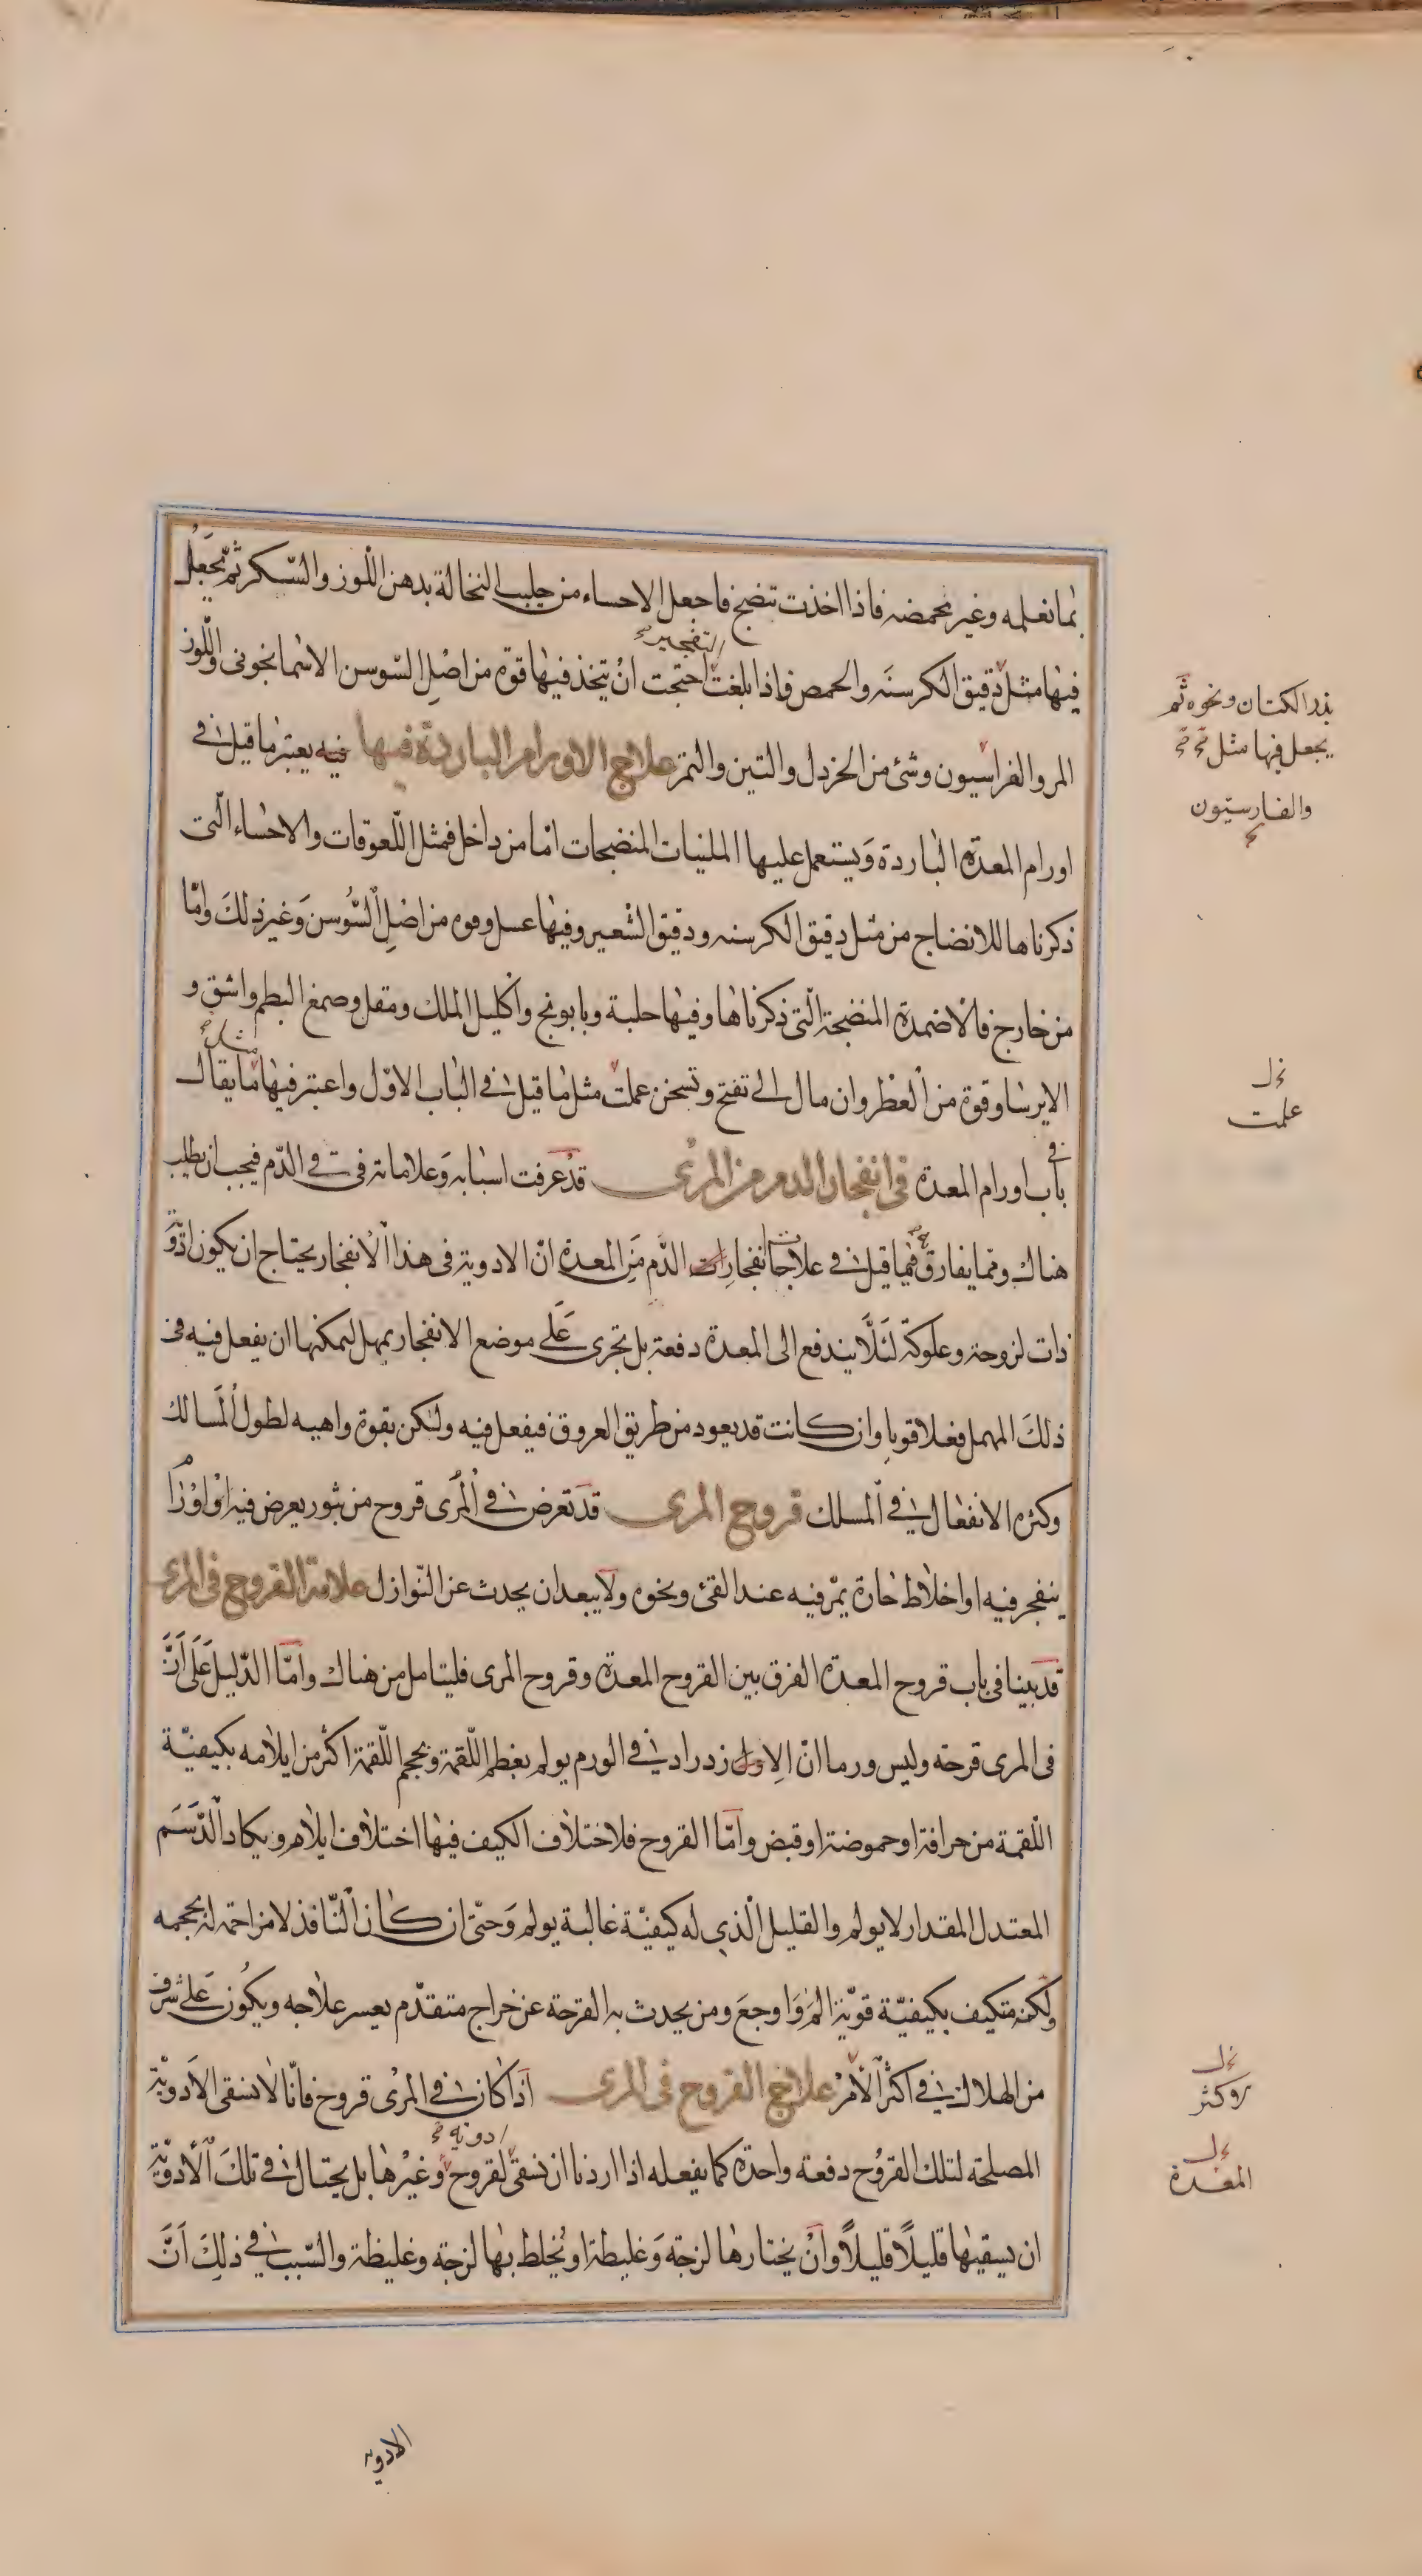 بما نعلمه وغير محمضه فاذا اخذت تنضج فاجعل الاحساء من حليب النخالة بدهن اللوز والسّكر ثم تجعل
التفجير
فيها مثل دقيق الكرسنه والحمص فاذا بلغت احتجت ان يتخذ فيها قوة من اصل السّوسن الاسمانجونى واللوز
المر والفراسيون وشئ من الخردل والتين والتمر علاج الاورام الباردة فيها فيه يعتبر ما قيل فى
اورام المعدة الباردة ويستعمل عليها الملينات المنضجات امّا من داخل فمثل اللّعوقات والاحساء الّتى
ذكرناها للانضاج من مثل دقيق الكرسنه ودقيق الشعير وفيها عسل وقوه من اصل السّوسن وغير ذلك وامّا
من خارج فالاضمدة المنضجة الّتى ذكرناها وفيها حلبة وبابونج واكليل الملك ومقل وصمغ البطم واشق و
الايرسا وقوة من العطر وان مال الى تفتح وتسخن عملت مثل ما قيل فى الباب الاوّل واعتبر فيها ما يقال
فى
باب اورام المعدة فى انفجار الدم من المرى قد عرفت اسبابه وعلاماته فى قى الدّم فيجب ان يطلب
هناك ومما يفارق فيما قيل فى علاجات انفجارات الدّم من المعدة انّ الادوية فى هذا الانفجار يحتاج ان يكون ادوية
ذات لزوجة وعلوكة لئلّا يندفع الى المعدة دفعة بل تجرى على موضع الانفجار بمهل ليمكنها ان يفعل فيه فى
ذلك المهمل فعلا قويا وان كانت قد يعود من طريق العروق فيفعل فيه ولكن بقوة واهيه لطول المسالك
وكثرة الانفعال فى المسلك قروح المرى قد تعرض فى المرى قروح من بثور يعرض فيه او اورام
ينفجر فيه او اخلاط حادة يمر فيه عند القئ ونحوه ولا يبعد ان يحدث عن النّوازل علامة القروح فى المرى
قد بينا فى باب قروح المعدة الفرق بين القروح المعدة وقروح المرى فليتامل من هناك وامّا الدّليل على انّ
فى المرى قرحة وليس ورما انّ الازدراد فى الورم يولم بعظم اللّقمة وبحجم اللّقمة اكثر من ايلامه بكيفيّة
اللّقمة من حرافة او حموضة او قبض وامّا القروح فلاختلاف الكيف فيها اختلاف ايلام ويكاد الدّسم
المعتدل المقدار لا يولم والقليل الّذى له كيفيّة غالبة يولم وحتّى ان كان النّافذ لا مزاحمة له بحجمه
ولكنّه متكيف بكيفيّة قويّة الم واوجع ومن يحدث به القرحة عن خراج متقدّم يعسر علاجه ويكون على شرف
من الهلاك فى اكثر الامر علاج القروح فى المرى اذا كان فى المرى قروح فانّا لا نسقى الادوية
ادوية
المصلحة لتلك القروح دفعة واحدة كما يفعله اذا اردنا ان نسقى لقروح وغيرها بل يحتال فى تلك الادوية
ان يسقيها قليلًا قليلًا وان يختارها لزجة وغليظة او يخلط بها لزجة وغليظة والسّبب فى ذلك انّ
بذر الكتان ونحوه ثم
يجعل فيها مثل
والفارسيون
علمت
وكثر
المعدة
الادوية